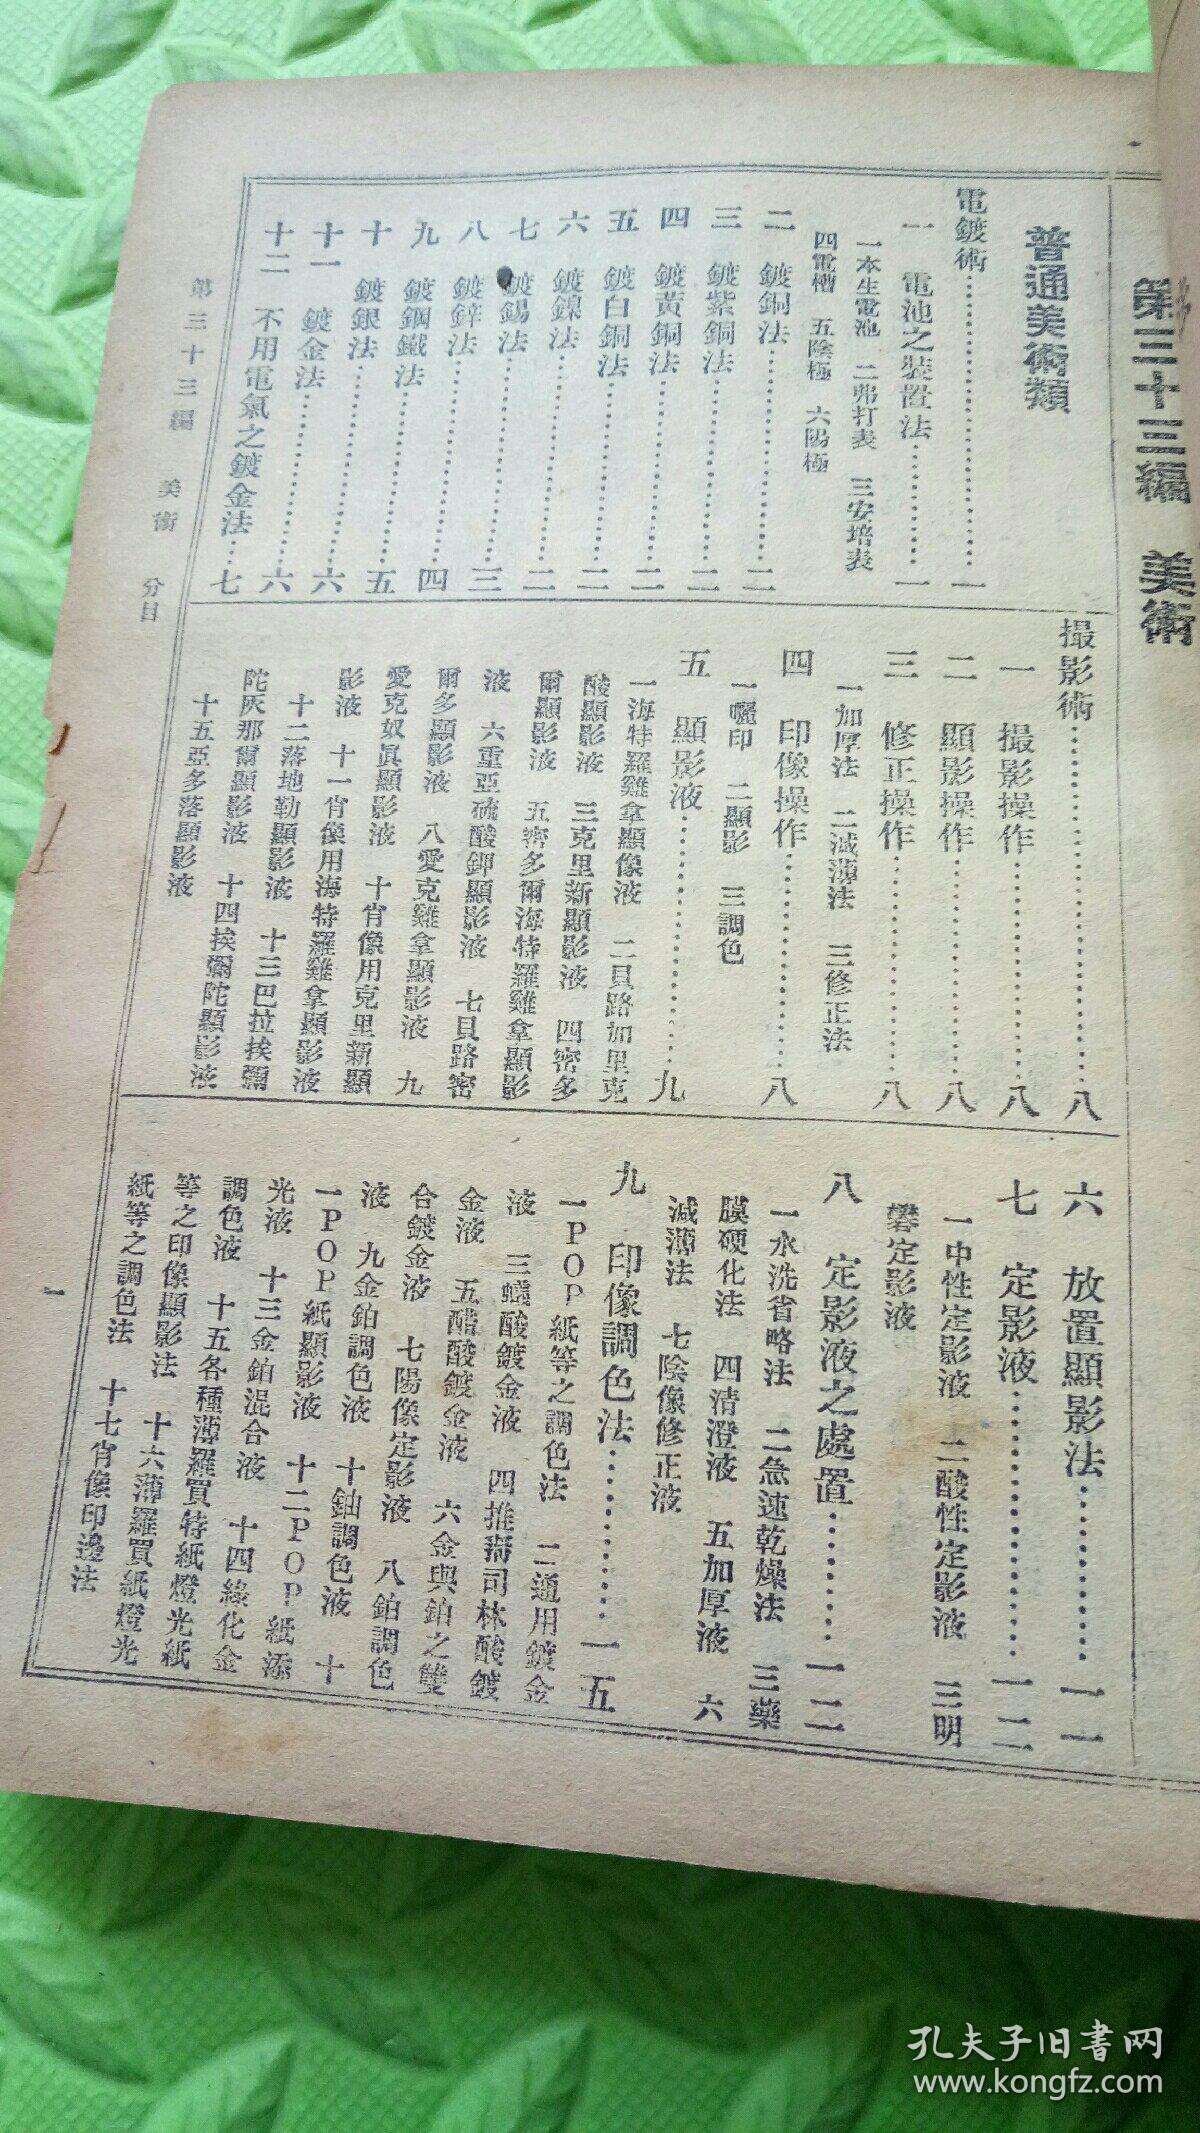 第三十三編　美術
普通美術類
電鍍術……………………一
一　電池之裝置法…………一
一本生電池　二弗打表　三安培表
四電槽　五陰極　六陽極
二　鍍銅法…………二
三　鍍紫銅法…………二
四　鍍黃銅法…………二
五　鍍白銅法…………二
六　鍍鎳法…………二
七　鍍錫法…………二
八　鍍鋅法…………三
九　鍍鋼鐵法…………四
十　鍍銀法…………五
十一　鍍金法…………六
十二　不用電氣之鍍金法…七
撮影術……………………八
一　撮影操作…………八
二　顯影操作…………八
三　修正操作…………八
一加厚法　二減薄法　三修正法
四　印像操作…………八
一曬印　二顯影　三調色
五　顯影液…………九
一海特羅雞拿顯像液　二貝路加里克
酸顯影液　三克里新顯影液　四密多
爾顯影液　五密多爾海特羅雞拿顯影
液　六重亞硫酸鉀顯影液　七貝路密
爾多顯影液　八愛克雞拿顯影液　九
愛克奴眞顯影液　十肖像用克里新顯
影液　十一肖像用海特羅雞拿顯影液
十二落地勒顯影液　十三巴拉挨彌
陀灰那爾顯影液　十四挨彌陀顯影液
十五亞多落顯影液
六　放置顯影法…………一一
七　定影液…………一二
一中性定影液　二酸性定影液　三明
礬定影液
八　定影液之處置…………一二
一水洗省略法　二急速乾燥法　三藥
膜硬化法　四清澄液　五加厚液　六
減薄法　七陰像修正液
九　印像調色法…………一五
一POP紙等之調色法　二通用鍍金
液　三蟻酸鍍金液　四推司林酸鍍
金液　五醋酸鍍金液　六金與鉑之雙
合鍍金液　七陽像定影液　八鉑調色
液　九金鉑調色液　十鈾調色液　十
一POP紙顯影液　十二POP紙添
光液　十三金鉑混合液　十四綠化金
調色液　十五各種薄羅買特紙燈光紙
等之印像顯影法　十六薄羅買紙燈光
紙等之調色法　十七肖像印邊法
第三十三編　美術　分目
一
孔夫子旧书网
www.kongfz.com